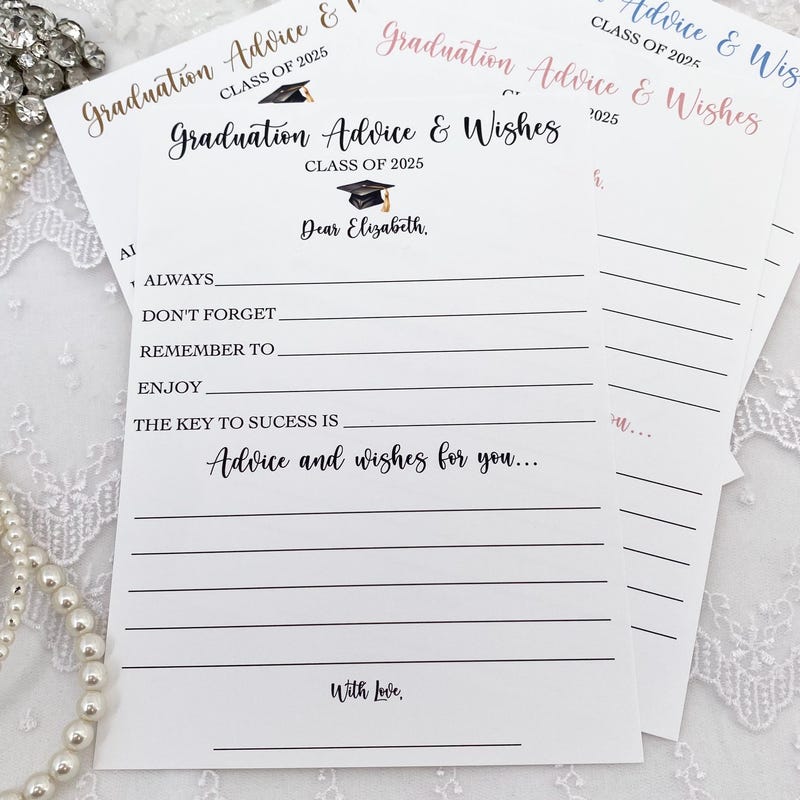 Graduation Advice & Wishes
CLASS OF 2025
Dear Elizabeth,
ALWAYS
DON'T FORGET
REMEMBER TO
ENJOY
THE KEY TO SUCESS IS
Advice and wishes for you...
With Love,
Graduation Advice &
CLASS OF 2025
Graduation Advice & Wishes
2025
you...
Advice & Wis
CLASS OF 2025